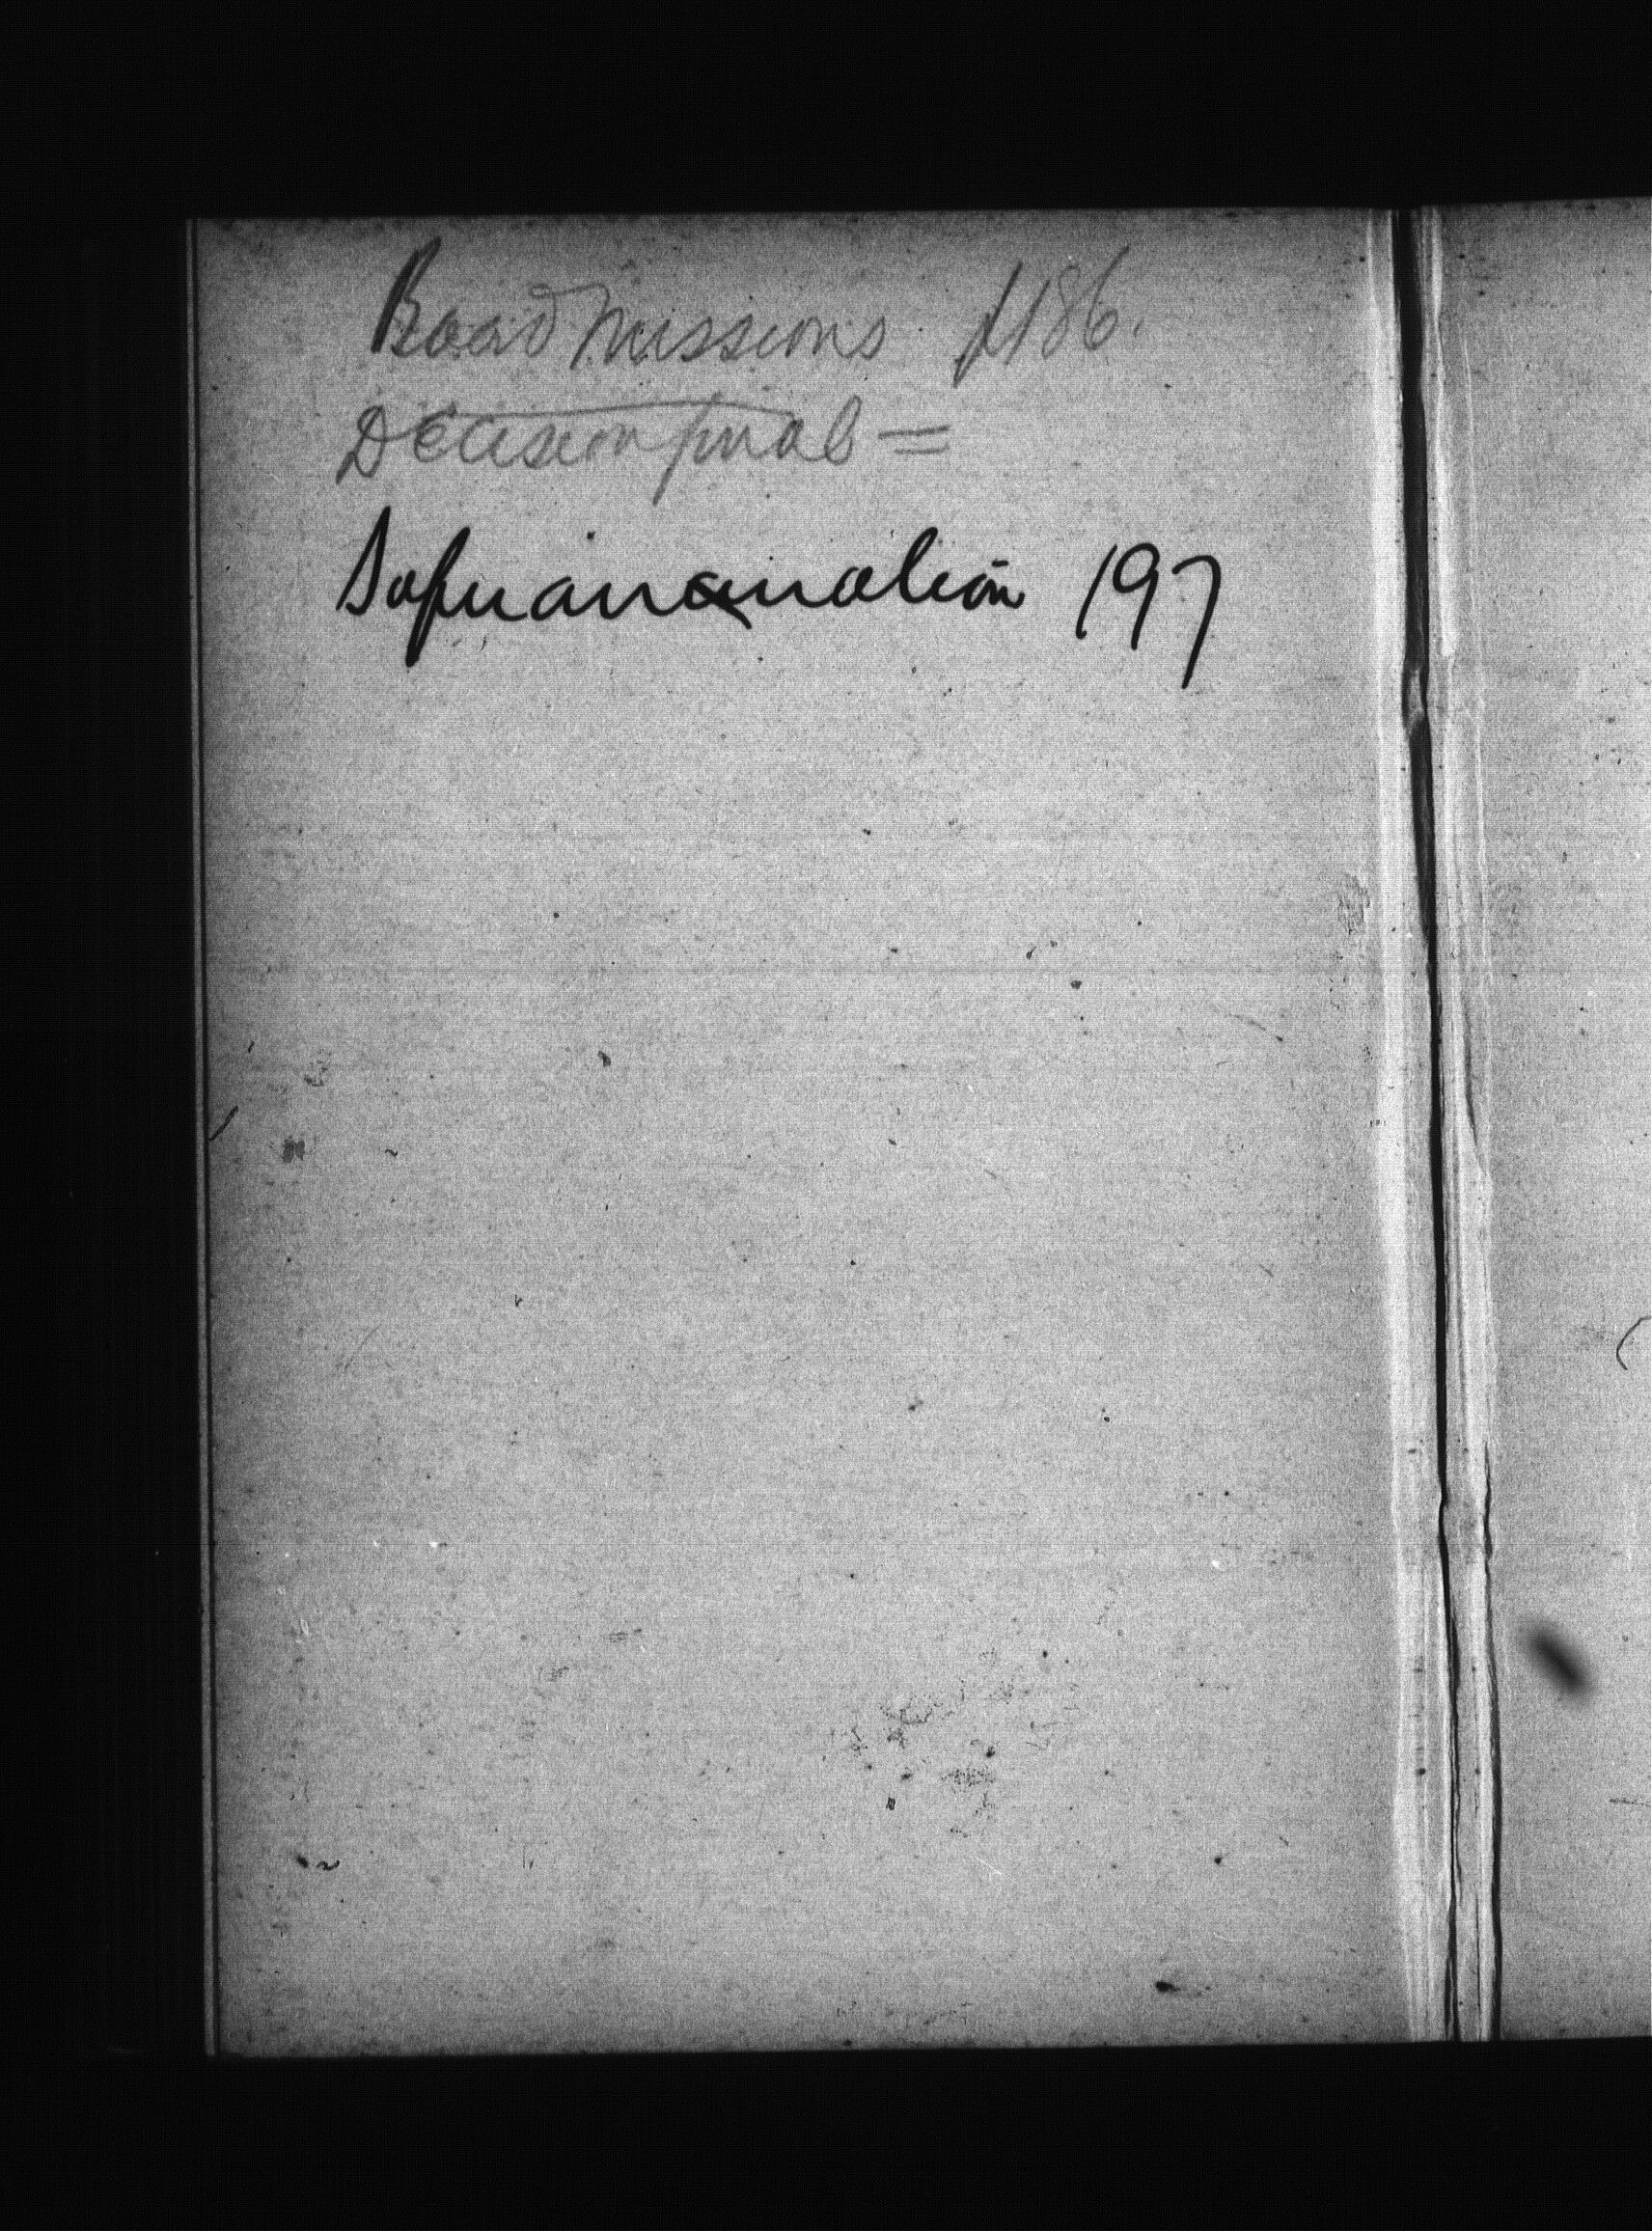 Board Missions p186.
Decision final =
Supuranenuation 197